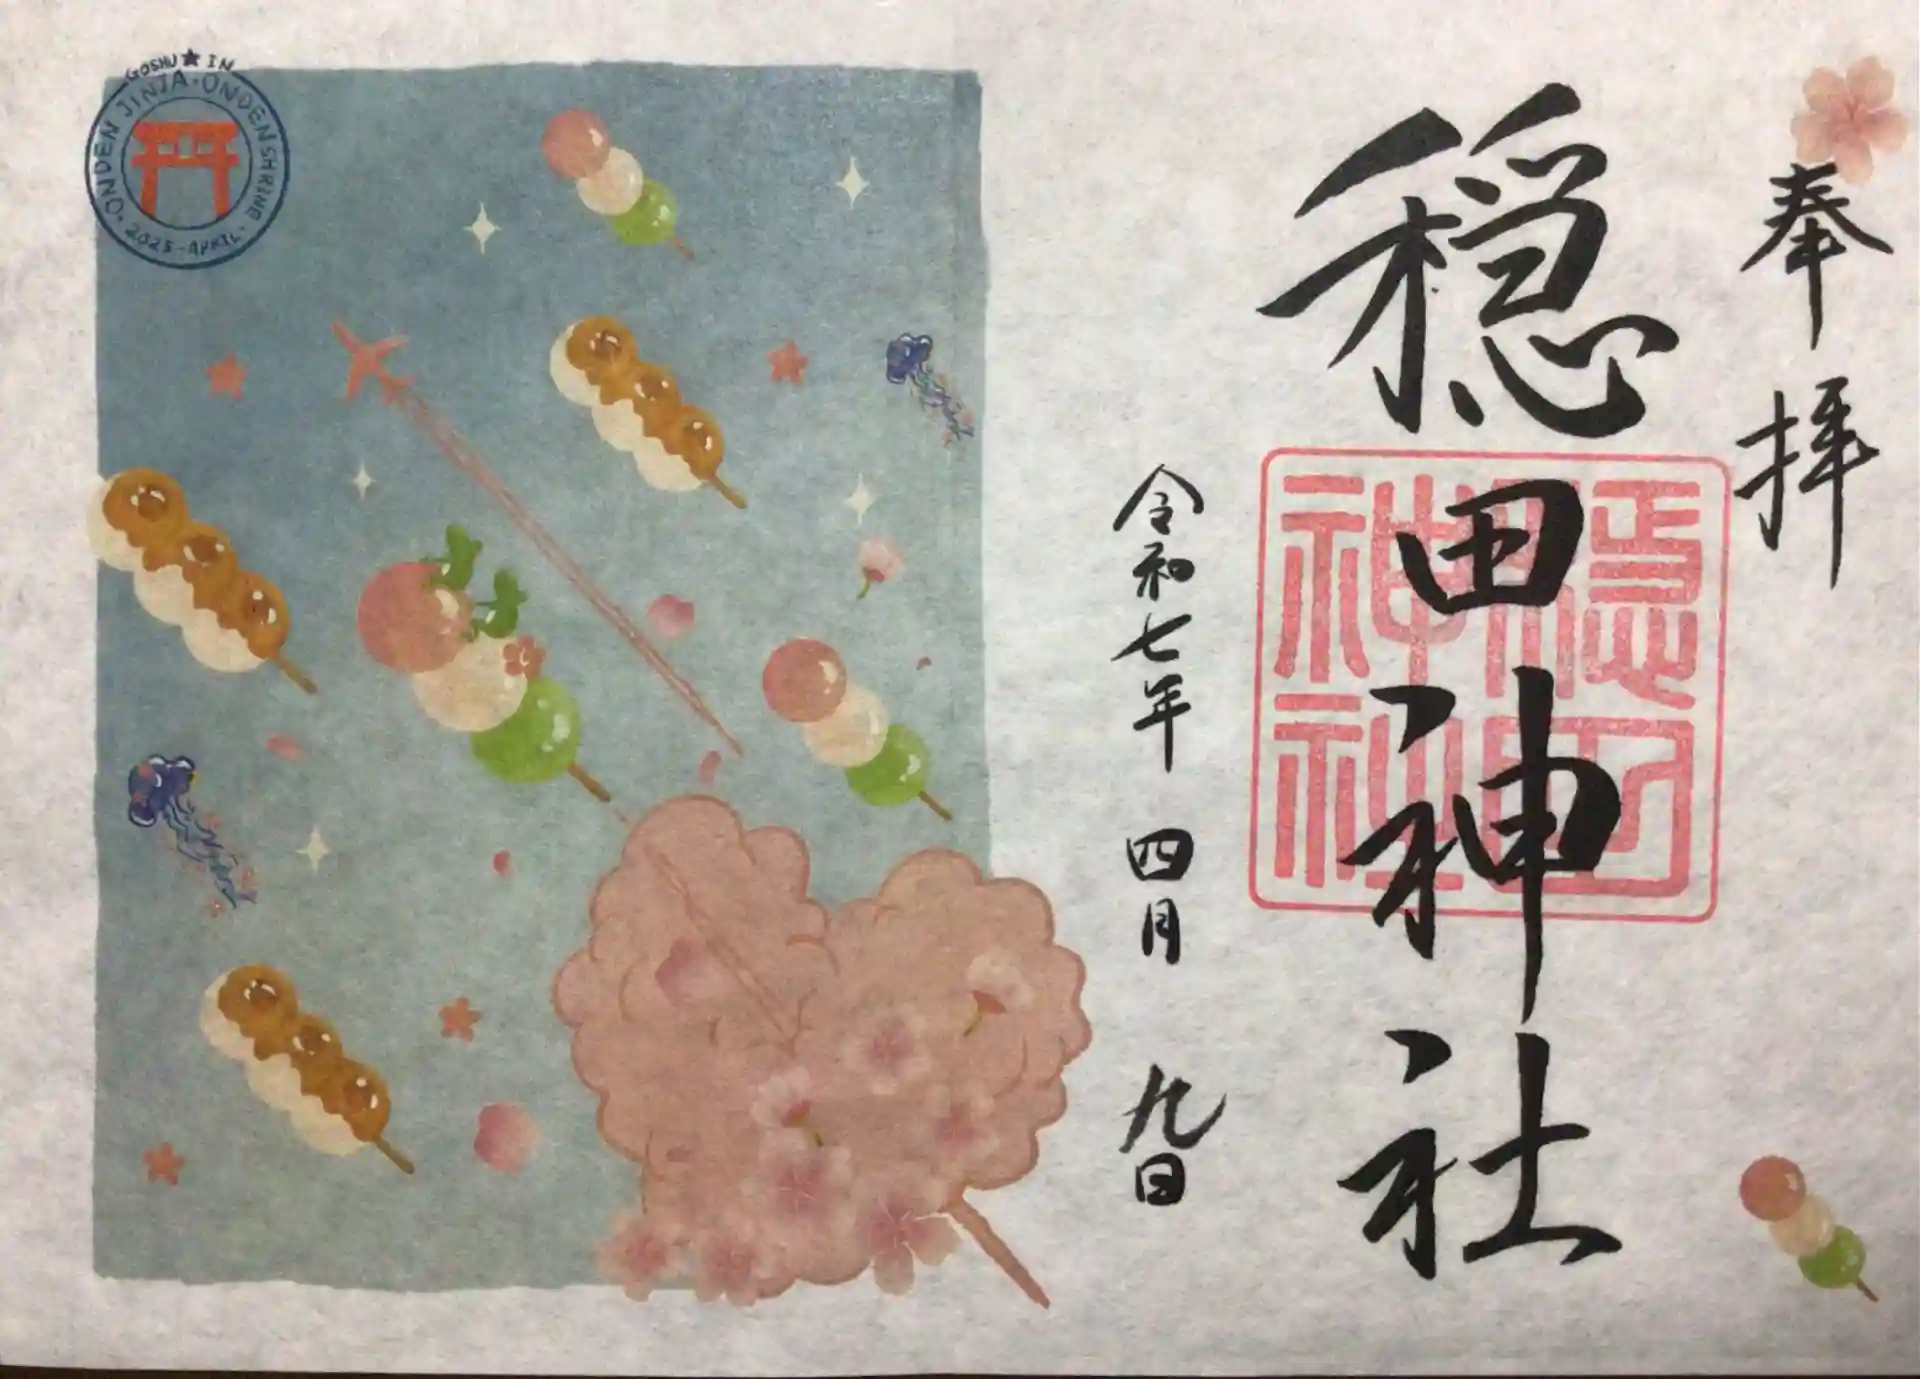 奉拝
穏田神社
穏田
神社
令和七年 四月 九日
GOSHU★IN
ONDEN JINJA・ONDEN SHRINE
・2025-APRIL・